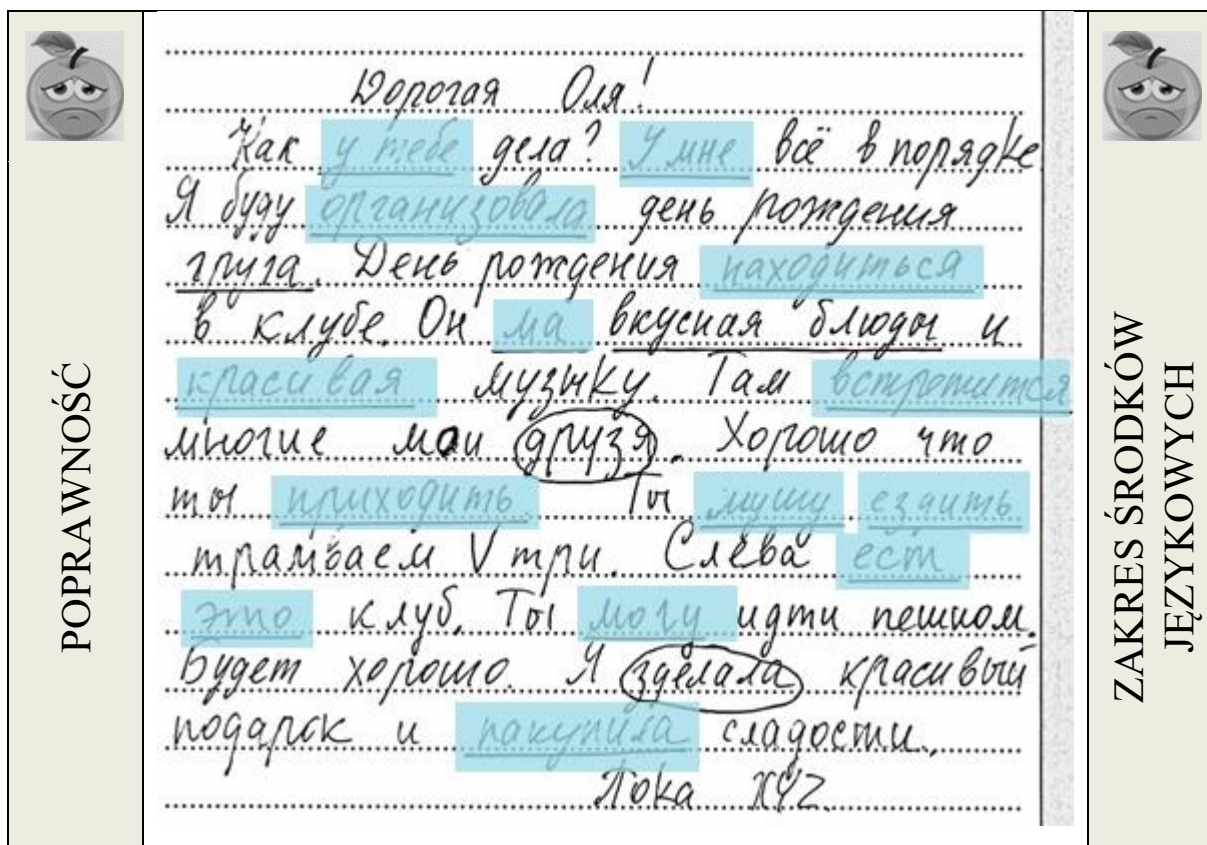 POPRAWNOŚĆ
Дорогая Оля!
Как у тебе дела? У мне всё в порядке
Я буду организовала день рождения
груга. День рождения находиться
в клубе. Он ма вкусная блюды и
красивая музыку. Там встротится
многие мои друзя. Хорошо что
ты приходить Ты мушу ездить
трамваем V три. Слева ест
это клуб. Ты могу идти пешком.
Будет хорошо. Я зделала красивый
подарок и пакупила сладости.
Пока XYZ.
ZAKRES ŚRODKÓW
JĘZYKOWYCH